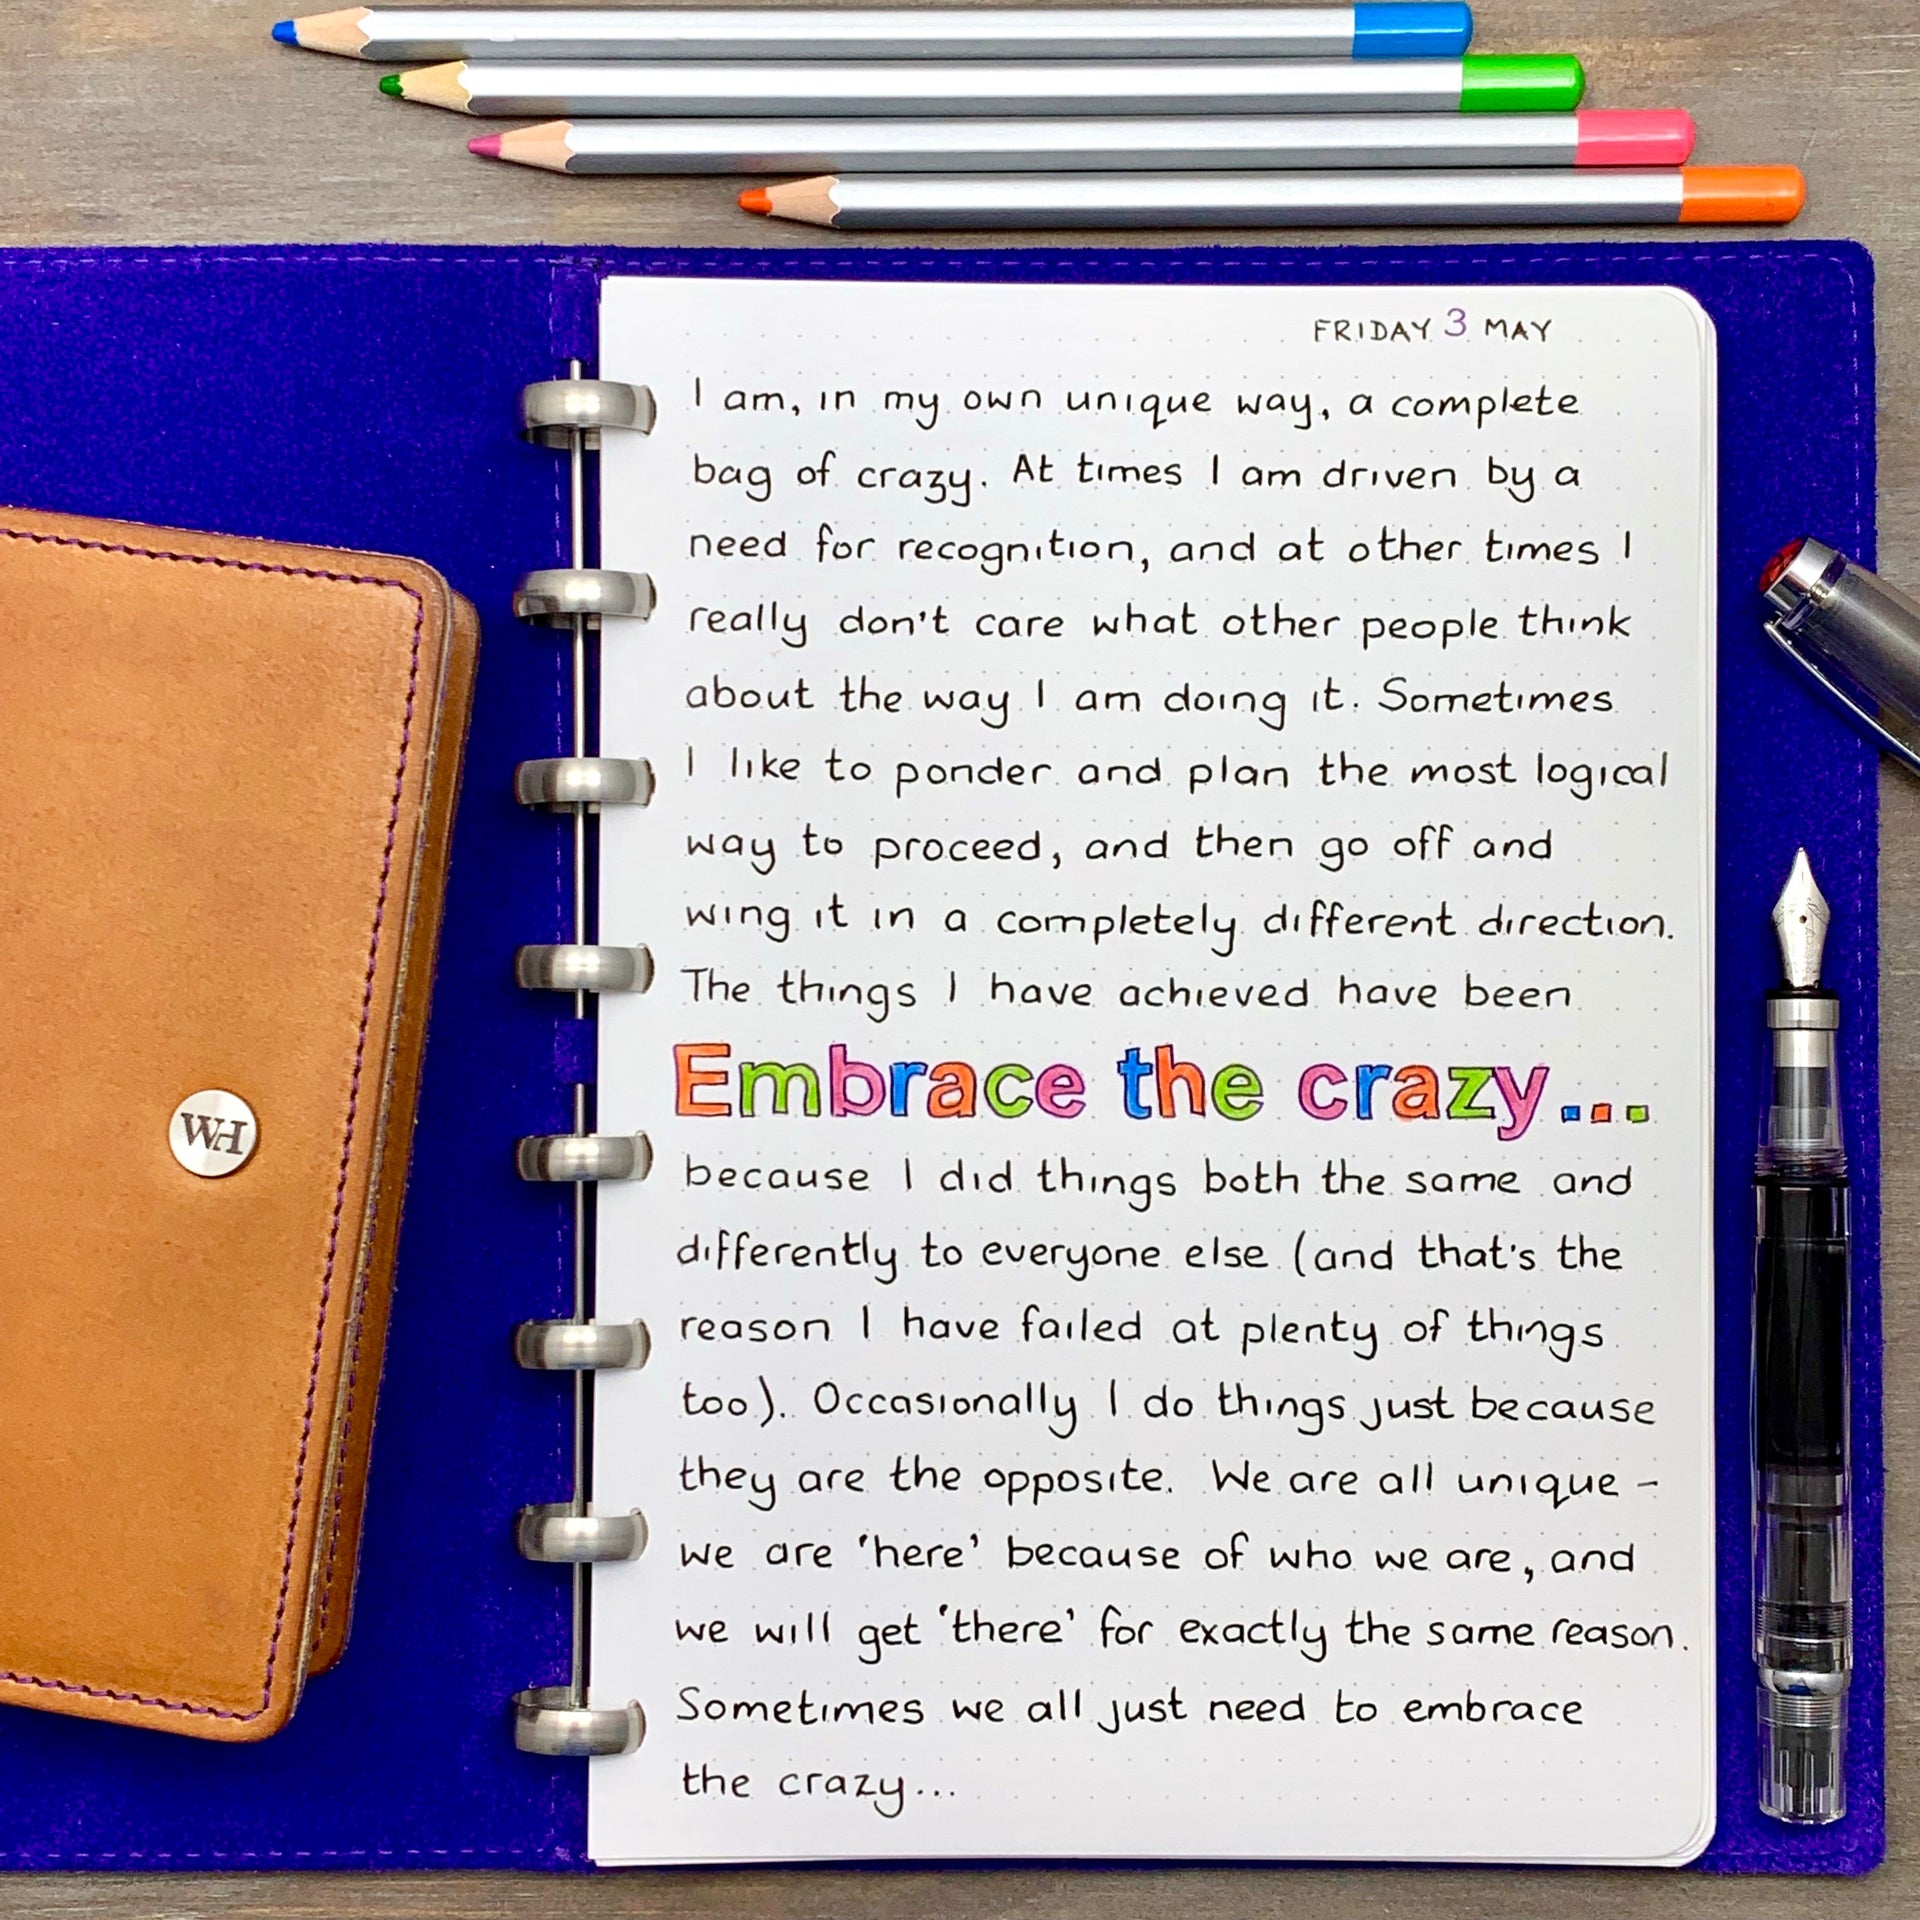 FRIDAY 3 MAY
I am, in my own unique way, a complete
bag of crazy. At times I am driven by a
need for recognition, and at other times I
really don't care what other people think
about the way I am doing it. Sometimes
I like to ponder and plan the most logical
way to proceed, and then go off and
wing it in a completely different direction.
The things I have achieved have been
Embrace the crazy...
because I did things both the same and
differently to everyone else (and that's the
reason I have failed at plenty of things
too). Occasionally I do things just because
they are the opposite. We are all unique -
we are 'here' because of who we are, and
we will get 'there' for exactly the same reason.
Sometimes we all just need to embrace
the crazy...
WH